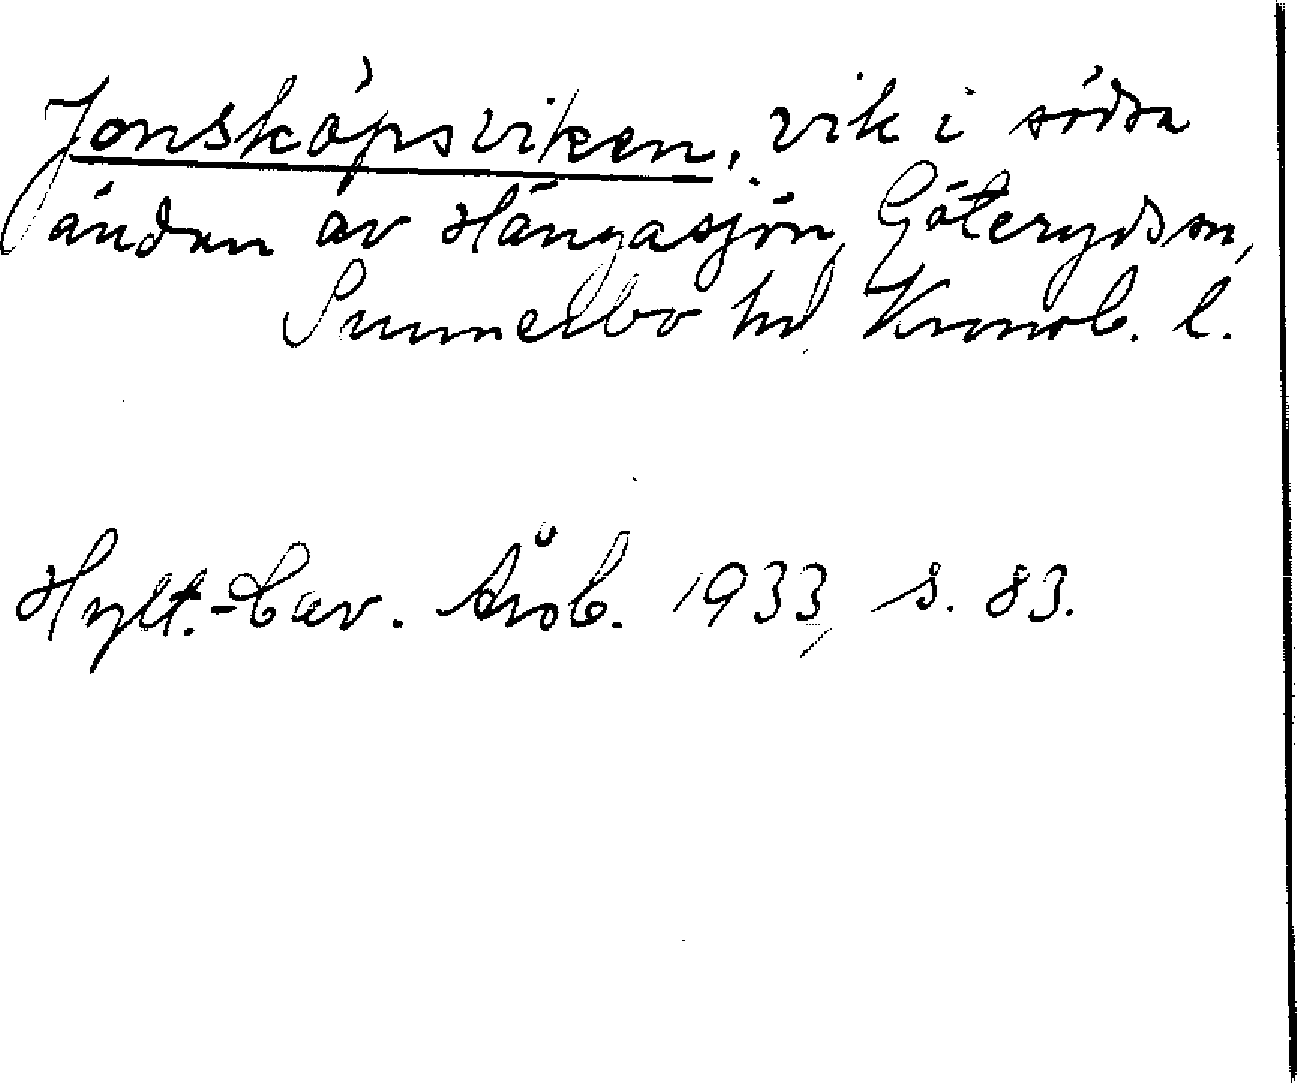 Jonsköpsviken, vik i södra
ändan av Hängasjön, Göteryds sn,
Sunnerbo hd Kronob. l.
Hylt.-Cav. Årsb. 1933, s. 83.